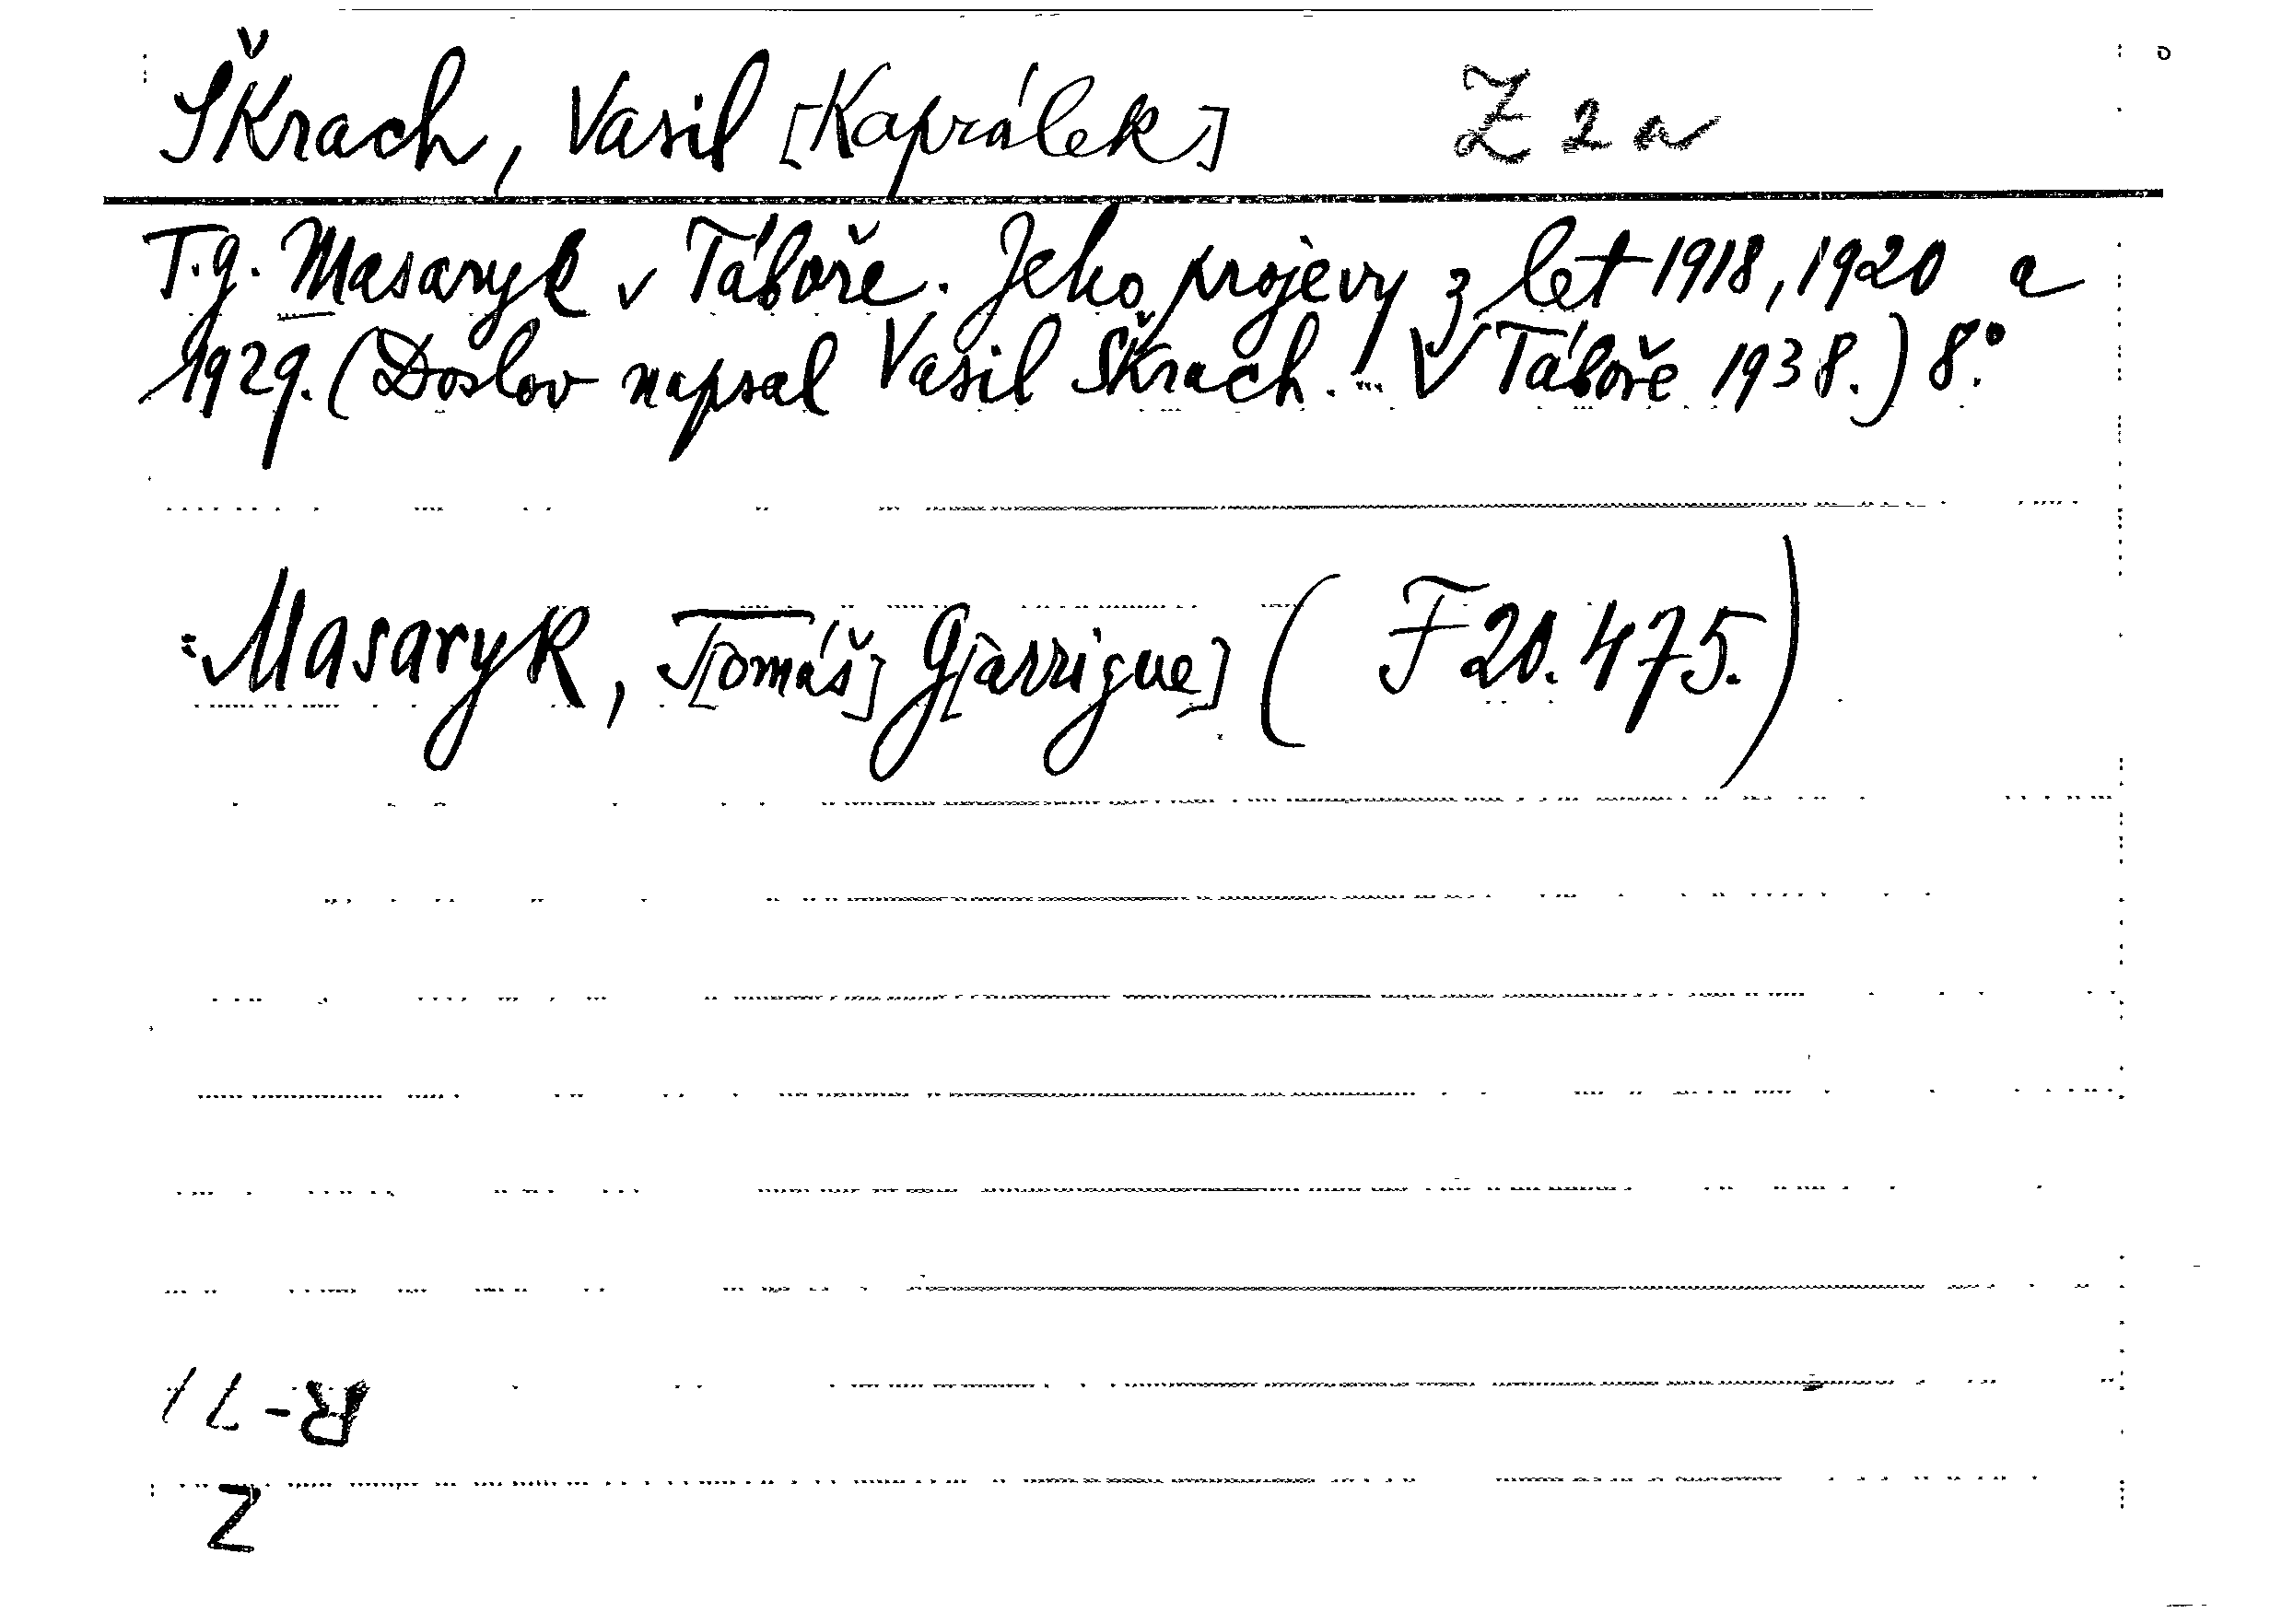 Škrach, Vasil [Kaprálek] Z 2 a
T.g. Masaryk v Táboře. Jeho projevy z let 1918, 1920 a
1929. (Doslov napsal Vasil Škrach. V Táboře 1938.) 8°.
Masaryk, T[omáš] G[arrigue] ( F 20.475.)
R-71
Z